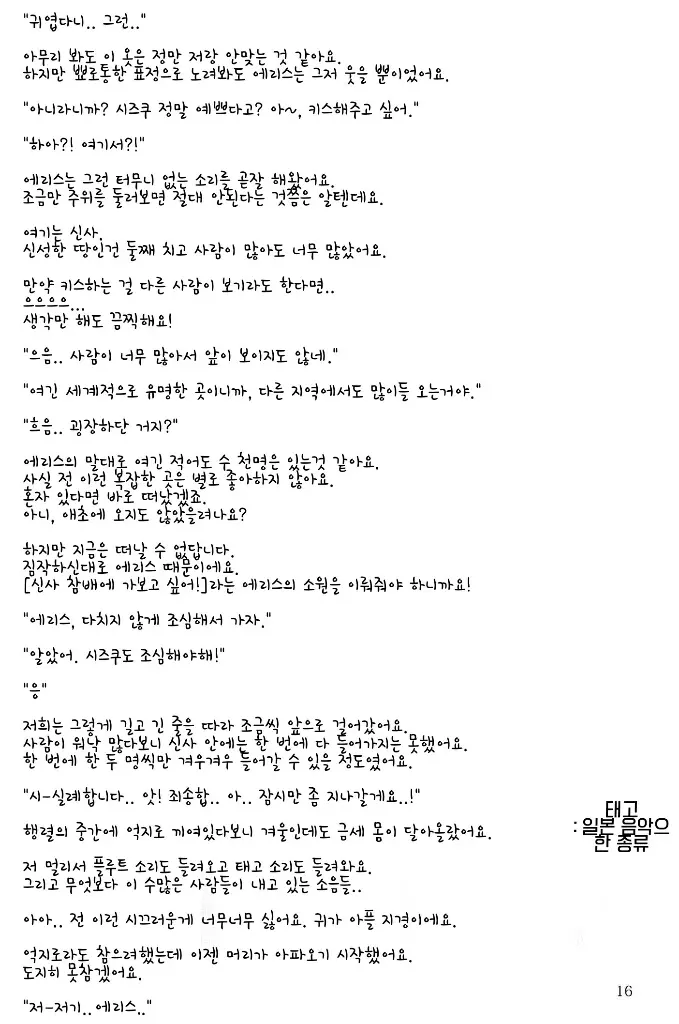 "귀엽다니.. 그런.."
아무리 봐도 이 옷은 정만 저랑 안맞는 것 같아요.
하지만 뾰로통한 표정으로 노려봐도 에리스는 그저 웃을 뿐이었어요.
"아니라니까? 시즈쿠 정말 예쁘다고? 아~, 키스해주고 싶어."
"하아?! 여기서?!"
에리스는 그런 터무니 없는 소리를 곧잘 해왔어요.
조금만 주위를 둘러보면 절대 안된다는 것쯤은 알텐데요.
여기는 신사.
신성한 땅인건 둘째 치고 사람이 많아도 너무 많았어요.
만약 키스하는 걸 다른 사람이 보기라도 한다면..
으으으으...
생각만 해도 끔찍해요!
"으음.. 사람이 너무 많아서 앞이 보이지도 않네."
"여긴 세계적으로 유명한 곳이니까, 다른 지역에서도 많이들 오는거야."
"흐음.. 굉장하단 거지?"
에리스의 말대로 여긴 적어도 수 천명은 있는것 같아요.
사실 전 이런 복잡한 곳은 별로 좋아하지 않아요.
혼자 있다면 바로 떠났겠죠.
아니, 애초에 오지도 않았을려나요?
하지만 지금은 떠날 수 없답니다.
짐작하신대로 에리스 때문이에요.
[신사 참배에 가보고 싶어!]라는 에리스의 소원을 이뤄줘야 하니까요!
"에리스, 다치지 않게 조심해서 가자."
"알았어. 시즈쿠도 조심해야해!"
"응"
저희는 그렇게 길고 긴 줄을 따라 조금씩 앞으로 걸어갔어요.
사람이 워낙 많다보니 신사 안에는 한 번에 다 들어가지는 못했어요.
한 번에 한 두 명씩만 겨우겨우 들어갈 수 있을 정도였어요.
"시-실례합니다.. 앗! 죄송합.. 아.. 잠시만 좀 지나갈게요..!"
행렬의 중간에 억지로 끼여있다보니 겨울인데도 금세 몸이 달아올랐어요.
저 멀리서 플루트 소리도 들려오고 태고 소리도 들려와요.
그리고 무엇보다 이 수많은 사람들이 내고 있는 소음들..
아아.. 전 이런 시끄러운게 너무너무 싫어요. 귀가 아플 지경이에요.
억지로라도 참으려했는데 이젠 머리가 아파오기 시작했어요.
도저히 못참겠어요.
"저-저기.. 에리스.."
태고
: 일본 음악으
한 종류
16